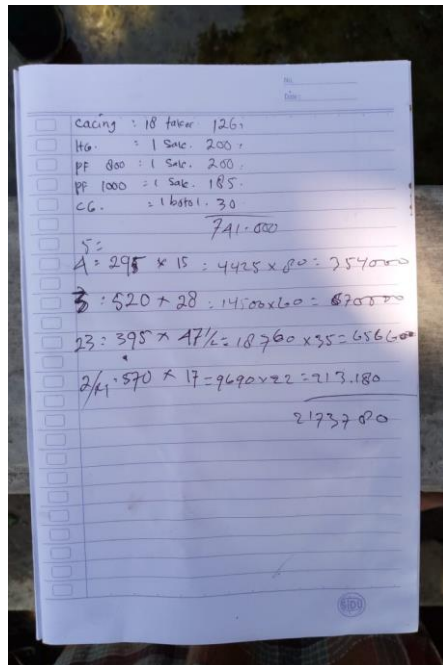 No.
Date:
Cacing : 18 takar 126.
HG. : 1 Sak. 200.
PF 800 : 1 Sak. 200.
PF 1000 : 1 Sak. 185.
CG. : 1 botol. 30
741.000
5 =
4 = 295 x 15 = 4425 x 80 = 354000
3 : 520 x 28 = 14500x60 = 870000
23 = 395 x 47½ = 18760 x 35 = 656600
2/M . 570 x 17 = 9690 x 22 = 213.180
2173780
SIDU